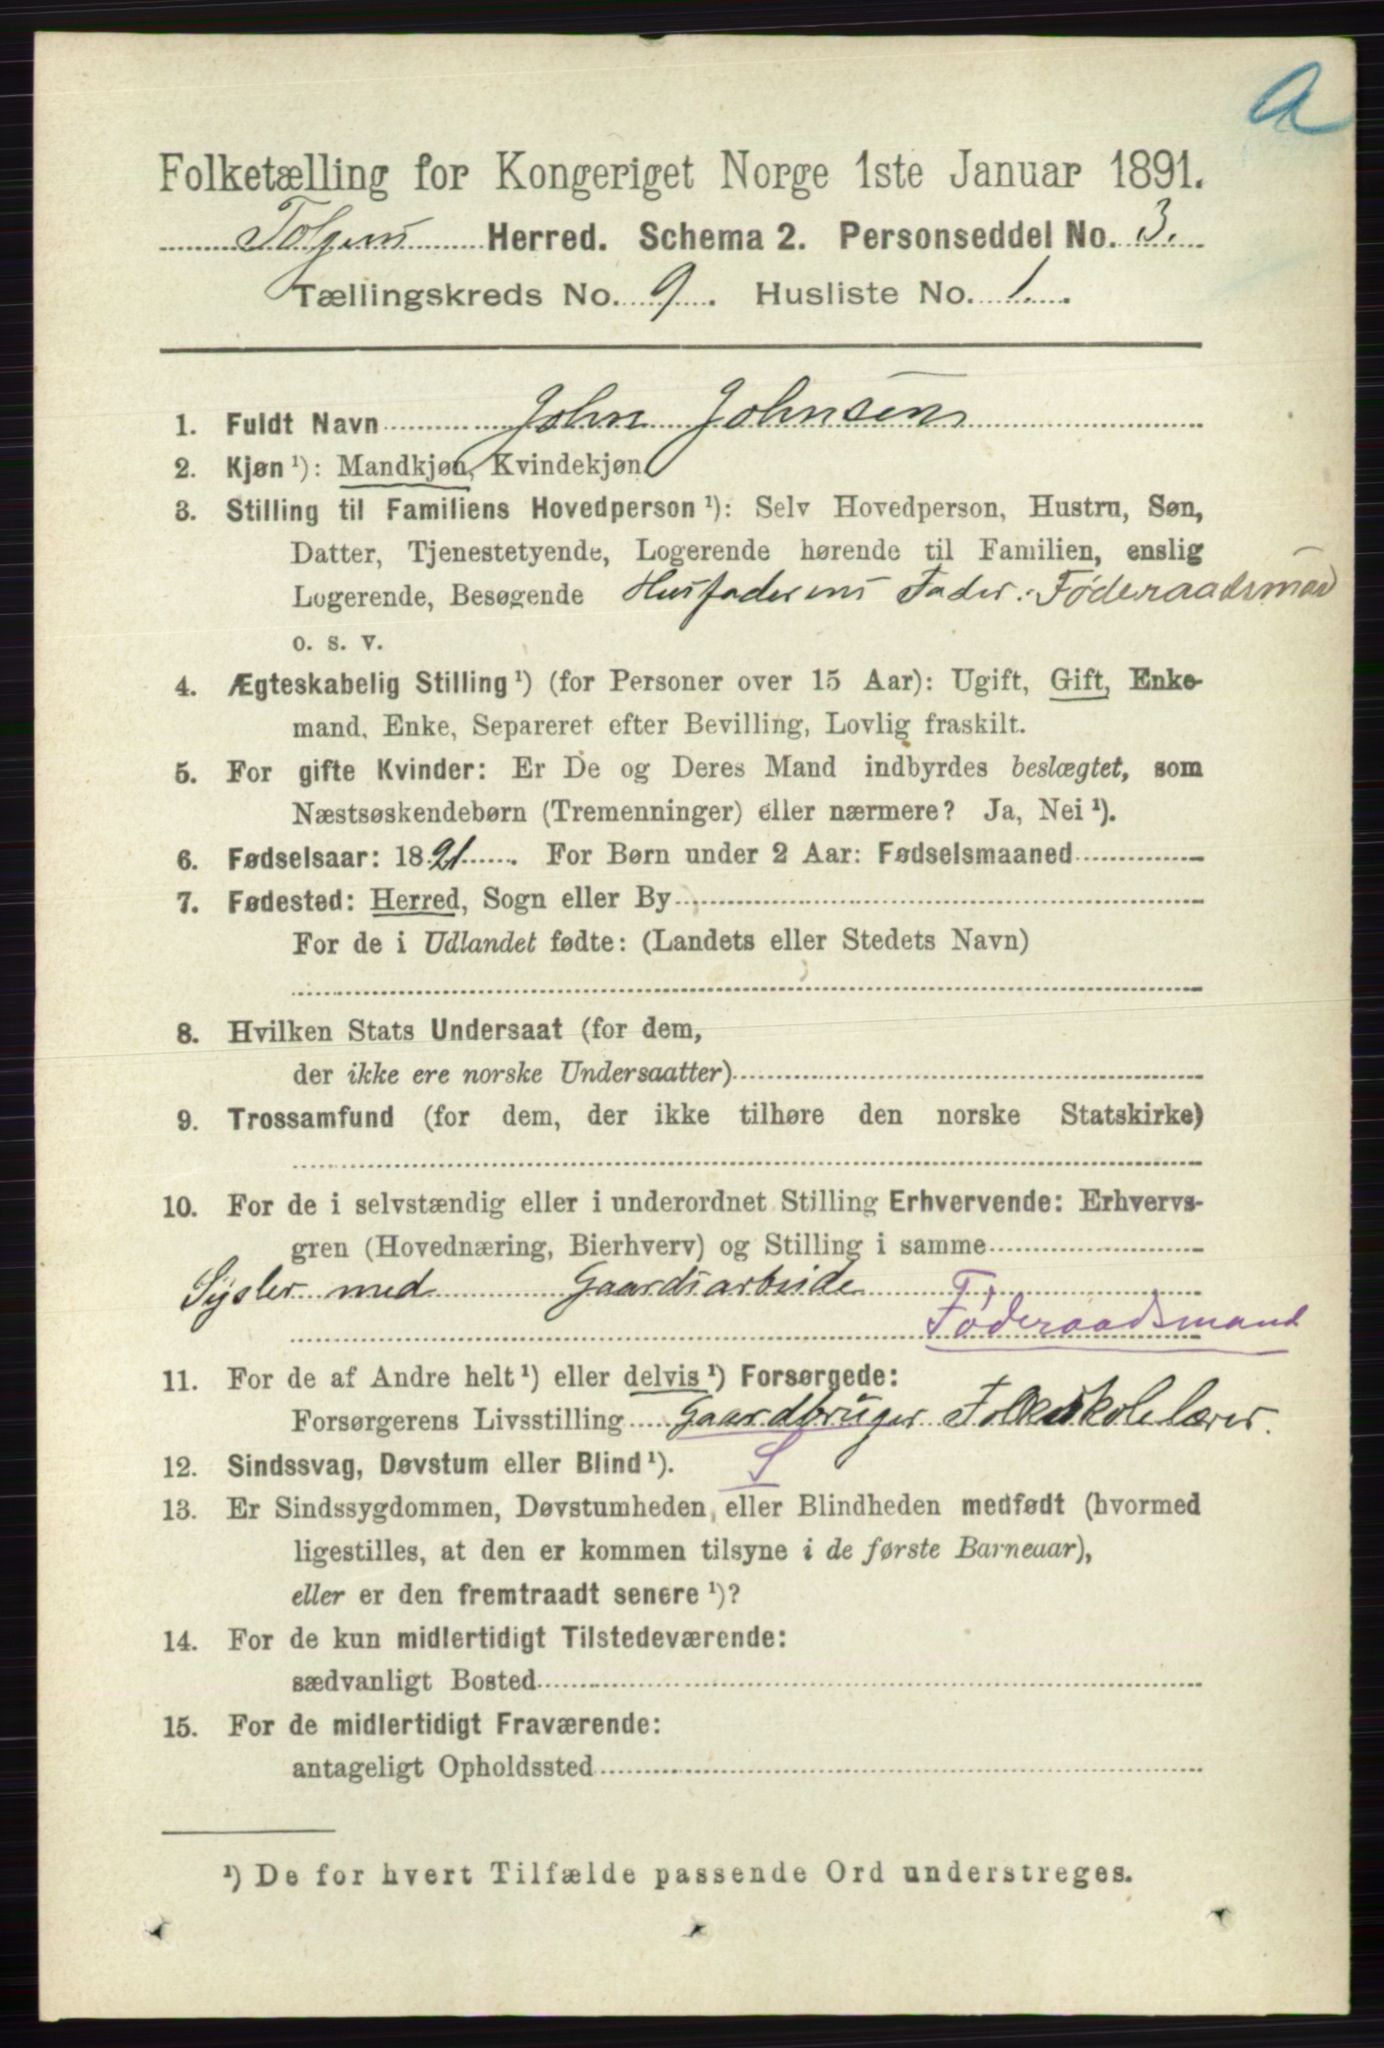 a
Folketælling for Kongeriget Norge 1ste Januar 1891.
Tolgens Herred. Schema 2. Personseddel No. 3.
Tællingskreds No. 9. Husliste No. 1.
1. Fuldt Navn John Johnsen
2. Kjøn ¹): Mandkjøn, Kvindekjøn
3. Stilling til Familiens Hovedperson ¹): Selv Hovedperson, Hustru, Søn,
Datter, Tjenestetyende, Logerende hørende til Familien, enslig
Logerende, Besøgende Husfaderens Fader. Føderaadsmand
o. s. v.
4. Ægteskabelig Stilling ¹) (for Personer over 15 Aar): Ugift, Gift, Enke-
mand, Enke, Separeret efter Bevilling, Lovlig fraskilt.
5. For gifte Kvinder: Er De og Deres Mand indbyrdes beslægtet, som
Næstsøskendebørn (Tremenninger) eller nærmere? Ja, Nei ¹).
6. Fødselsaar: 1821. For Børn under 2 Aar: Fødselsmaaned
7. Fødested: Herred, Sogn eller By
For de i Udlandet fødte: (Landets eller Stedets Navn)
8. Hvilken Stats Undersaat (for dem,
der ikke ere norske Undersaatter)
9. Trossamfund (for dem, der ikke tilhøre den norske Statskirke)
10. For de i selvstændig eller i underordnet Stilling Erhvervende: Erhvervs-
gren (Hovednæring, Bierhverv) og Stilling i samme
Sysler med Gaardsarbeide
Føderaadsmand
11. For de af Andre helt ¹) eller delvis ¹) Forsørgede:
Forsørgerens Livsstilling Gaardbruger Folkeskolelærer.
12. Sindssvag, Døvstum eller Blind ¹). S
13. Er Sindssygdommen, Døvstumheden, eller Blindheden medfødt (hvormed
ligestilles, at den er kommen tilsyne i de første Barneaar),
eller er den fremtraadt senere ¹)?
14. For de kun midlertidigt Tilstedeværende:
sædvanligt Bosted
15. For de midlertidigt Fraværende:
antageligt Opholdssted
¹) De for hvert Tilfælde passende Ord understreges.